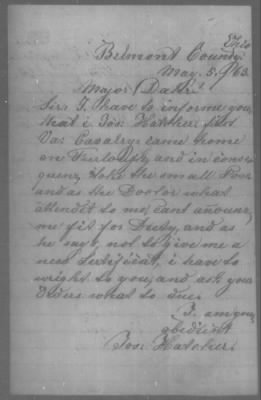 Ohio
Belmont County
May. 5. /63.
Major Darr.
Sir: I. have to informe you,
that i Jos: Hatcher: 1st
Va: Cavalry: came home
on Furlough, and in conse
quenz, toke the small Pox
and as the Doctor what
attendet to me, cant
me fit for Duty, and as
he say's, not to give me a
new Sertificat, i have to
wright to you, and ask your
Orders what to due.
I. am your
obedient
Jos: Hatcher.